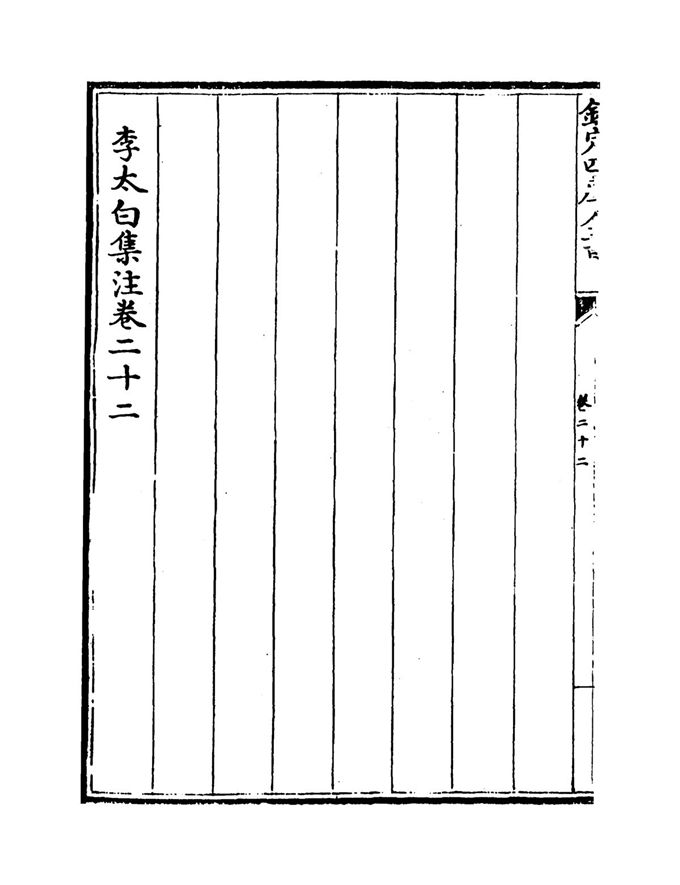 欽定四庫全書
卷二十二
李太白集注卷二十二